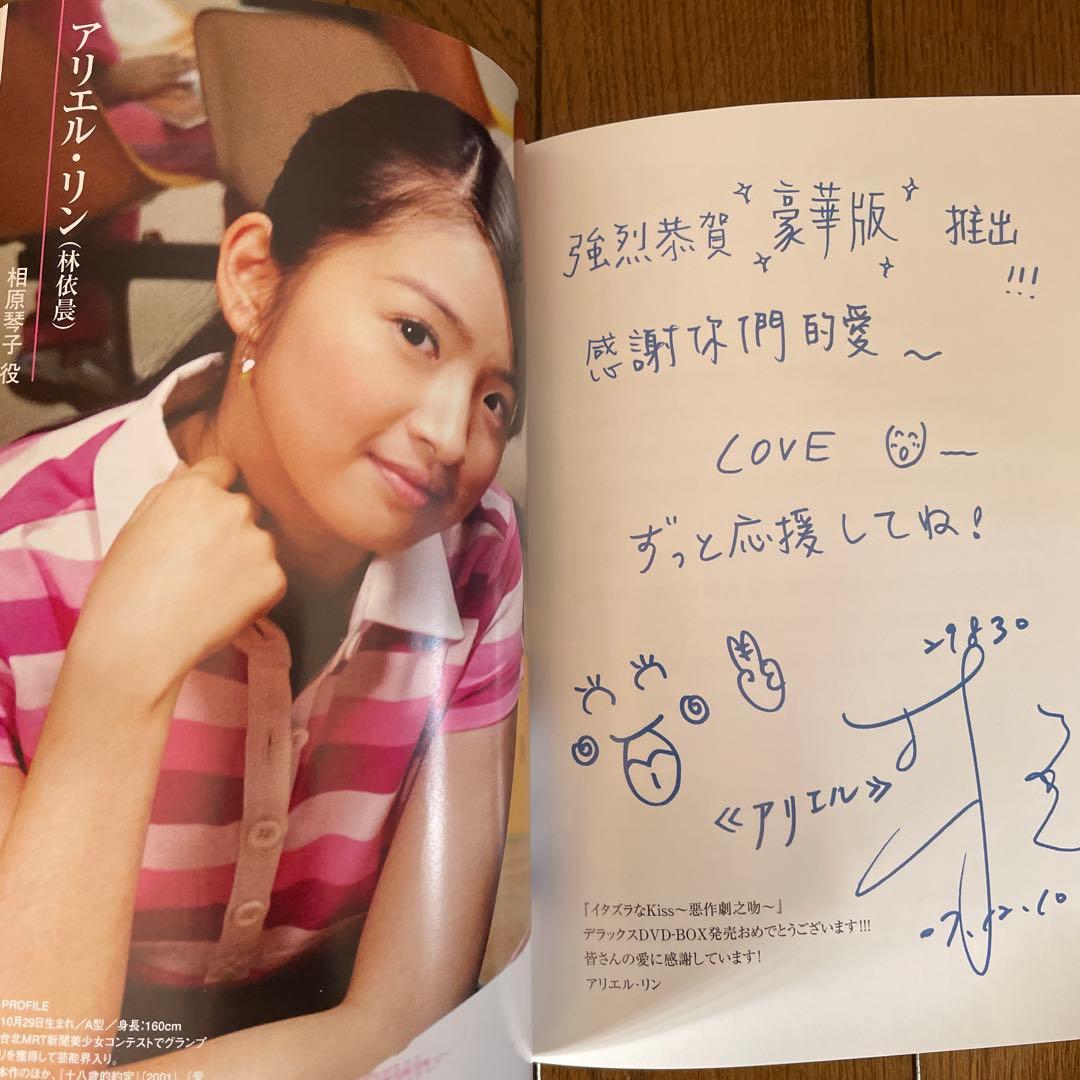 アリエル・リン(林依晨)
相原琴子 役
PROFILE
10月29日生まれ/A型/身長:160cm
台北MRT新聞美少女コンテストでグランプ
リを獲得して芸能界入り。
本作のほか、『十八歳的約定』(2001)、『愛
強烈恭賀 豪華版 推出
!!!
感謝你們的愛~
LOVE
ずっと応援してね!
≪アリエル≫
『イタズラなKiss~惡作劇之吻~』
デラックスDVD-BOX発売おめでとうございます!!!
皆さんの愛に感謝しています!
アリエル・リン